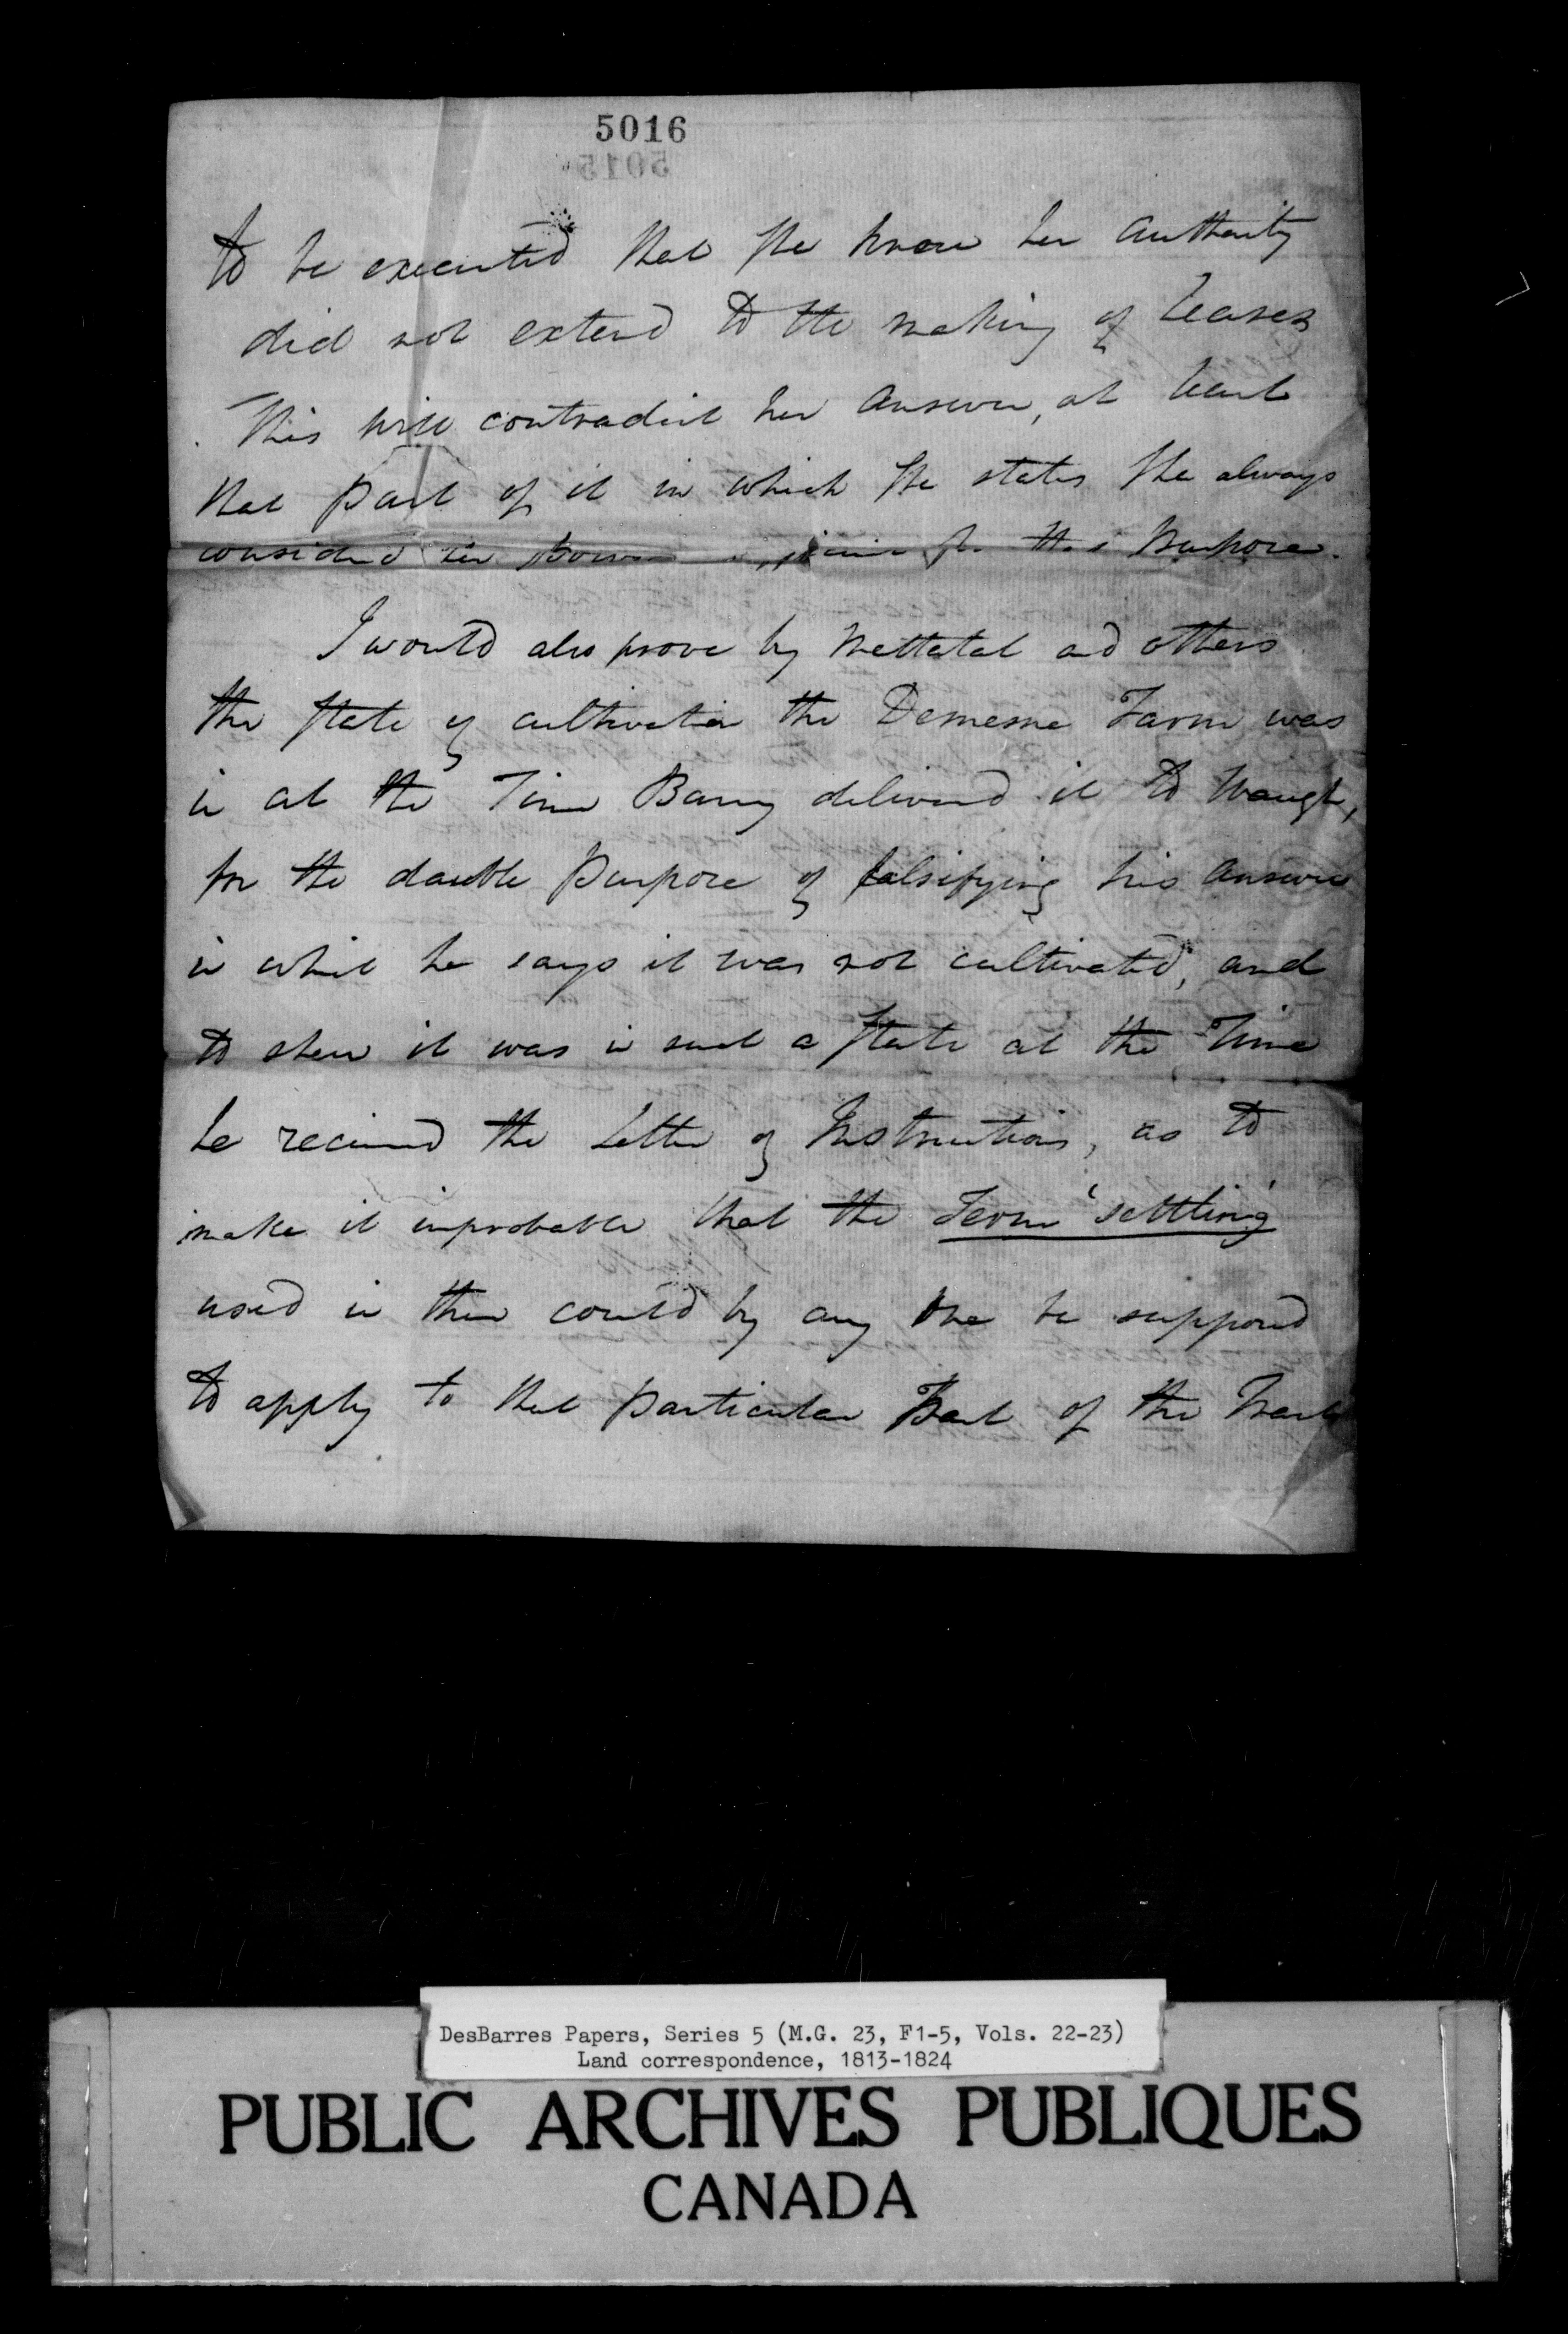 5016
5015
to be executed that she knew her authority
did not extend to the making of Leases
This will contradict her answer, at least
that part of it in which she states she always
considered her Power for this Purpose.
I would also prove by Mettatal and others
the state of cultivation the Demesne Farm was
in at the Time Barry delivered it to Waugh,
for the double purpose of falsifying his answer
in which he says it was not cultivated, and
to shew it was in such a state at the Time
he received the Letter of Instructions, as to
make it improbable that the Term 'settling'
used in them could by any one be supposed
to apply to that particular Part of the Tract
DesBarres Papers, Series 5 (M.G. 23, F1-5, Vols. 22-23)
Land correspondence, 1813-1824
PUBLIC ARCHIVES PUBLIQUES
CANADA